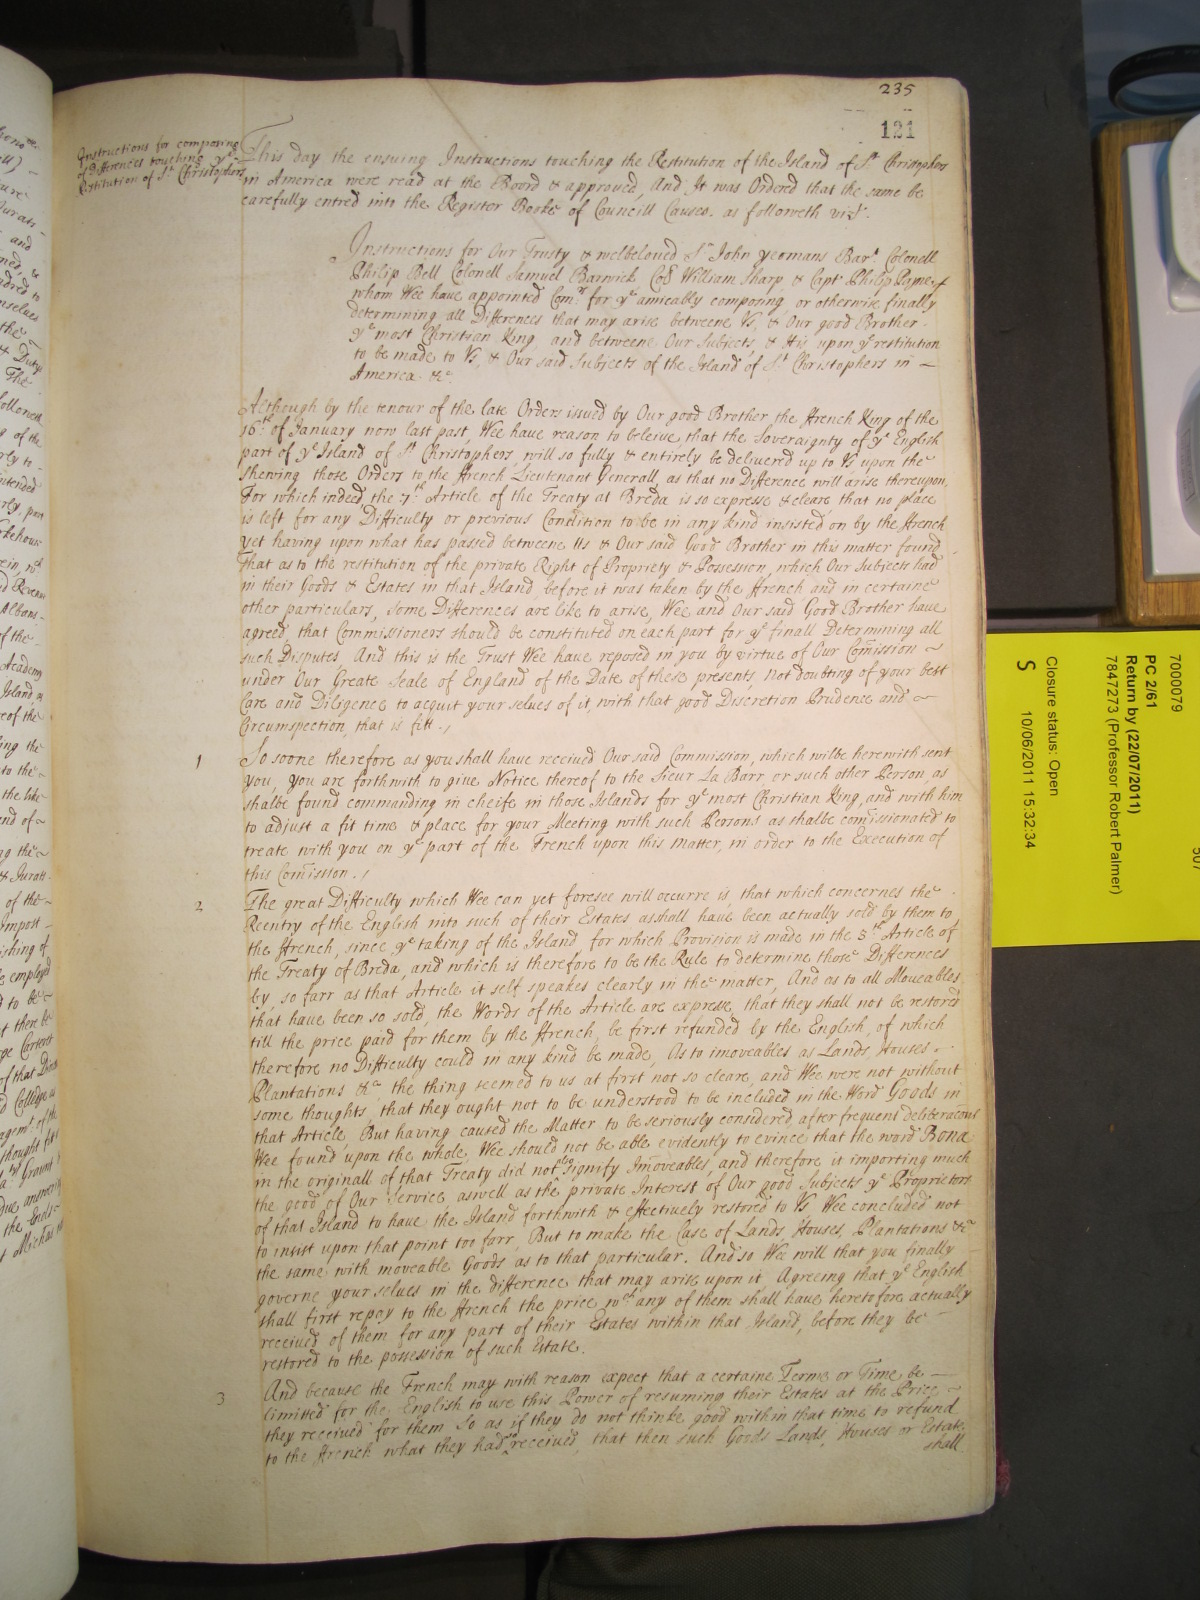 235
121
Instructions for composing
of differences touching yᵉ
restitution of Sᵗ Christophers
This day the ensuing Instructions touching the Restitution of the Island of Sᵗ Christophers
in America were read at the Board & approved, And It was Ordered that the same be
carefully entred into the Register Booke of Councill Causes. as followeth vizᵗ.
Instructions for Our Trusty & welbeloved Sʳ John Yeomans Barᵗ Colonell
Philip Bell Colonell Samuel Barwick Coll William Sharp & Capᵗ Philip Payne,
whom Wee have appointed Comʳˢ for yᵉ amicably composing or otherwise finally
determining all Differences that may arise betweene Us, & Our good Brother
yᵉ most Christian King, and betweene Our Subjects, & His, upon yᵉ restitution
to be made to Us, & Our said Subjects of the Island of Sᵗ Christophers in
America &cᵃ
Although by the tenour of the late Orders issued by Our good Brother the ffrench King of the
16ᵗʰ of January now last past, Wee have reason to beleive, that the Soveraignty of yᵉ English
part of yᵉ Island of Sᵗ Christophers, will so fully & entirely be delivered up to Us upon the
shewing those Orders to the ffrench Lieutenant Generall, as that no Difference will arise thereupon,
For which indeed, the 7ᵗʰ Article of the Treaty at Breda is so expresse & cleare that no place
is left for any Difficulty or previous Condition to be in any kind insisted on by the ffrench
yet having upon what has passed betweene Us & Our said Good Brother in this matter found
That as to the restitution of the private Right of Propriety & Possession, which Our Subjects had
in their Goods & Estates in that Island, before it was taken by the ffrench and in certaine
other particulars, some Differences are like to arise, Wee and Our said Good Brother have
agreed, that Commissioners should be constituted on each part for yᵉ finall Determining all
such Disputes And this is the Trust Wee have reposed in you by virtue of Our Comission
under Our Greate Seale of England of the Date of these presents, not doubting of your best
Care and Diligence to acquit your selves of it, with that good Discretion Prudence and
Circumspection, that is fitt.
1 So soone therefore as you shall have received Our said Commission, which wilbe herewith sent
you, you are forthwith to give Notice thereof to the Sieur La Barr or such other Person, as
shalbe found commanding in cheife in those Islands for yᵉ most Christian King, and with him
to adjust a fit time & place for your Meeting with such Persons as shalbe comissionated to
treate with you on yᵉ part of the French upon this matter, in order to the Execution of
this Comission.
2 The great Difficulty which Wee can yet foresee will occurre is, that which concernes the
Reentry of the English into such of their Estates as shall have been actually sold by them to
the ffrench, since yᵉ taking of the Island, for which Provision is made in the 8ᵗʰ Article of
the Treaty of Breda, and which is therefore to be the Rule to determine those Differences
by, so farr as that Article it self speakes clearly in the matter, And as to all Moveables
that have been so sold, the Words of the Article are expresse, that they shall not be restored
till the price paid for them by the ffrench, be first refunded by the English, of which
therefore no Difficulty could in any kind be made, As to imoveables as Lands, Houses
Plantations &cᵃ the thing seemed to us at first not so cleare, and Wee were not without
some thoughts, that they ought not to be understood to be included in the Word Goods in
that Article But having caused the Matter to be seriously considered, after frequent deliberacons
Wee found upon the whole, Wee should not be able evidently to evince that the word Bona
in the originall of that Treaty did not also signify Imoveables, and therefore it importing much
the good of Our Service aswell as the private Interest of Our good Subjects yᵉ Proprietors
of that Island to have the Island forthwith & effectively restored to Us Wee concluded not
to insist upon that point too farr, But to make the Case of Lands, Houses, Plantations &cᵃ
the same with moveable Goods as to that particular. And so Wee will that you finally
governe your selves in the difference that may arise upon it, Agreeing that yᵉ English
shall first repay to the ffrench the price wᶜʰ any of them shall have heretofore actually
received of them for any part of their Estates within that Island, before they be
restored to the possession of such Estate.
3 And because the French may with reason expect that a certaine Terme or Time be
limitted for the English to use this Power of resuming their Estates at the Price
they received for them So as if they do not thinke good within that time to refund
to the ffrench what they had so received, that then such Goods Lands, Houses or Estate
shall
7000079
PC 2/61
Return by (22/07/2011)
7847273 (Professor Robert Palmer)
Closure status: Open
S 10/06/2011 15:32:34